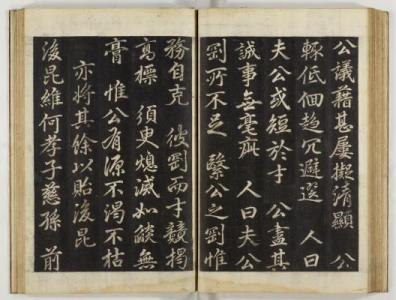 公議藉甚屢擬清顯 公
輒低佪趨冗避選 人曰
夫公或短於才 公盡其
誠事無毫疵 人曰夫公
罰所不足 繄公之罰惟
務自克 彼罰而才競揭
高標 須臾熄滅如燄無
膏 惟公有源不渴不枯
亦將其餘以貽後昆
後昆維何孝子慈孫 前